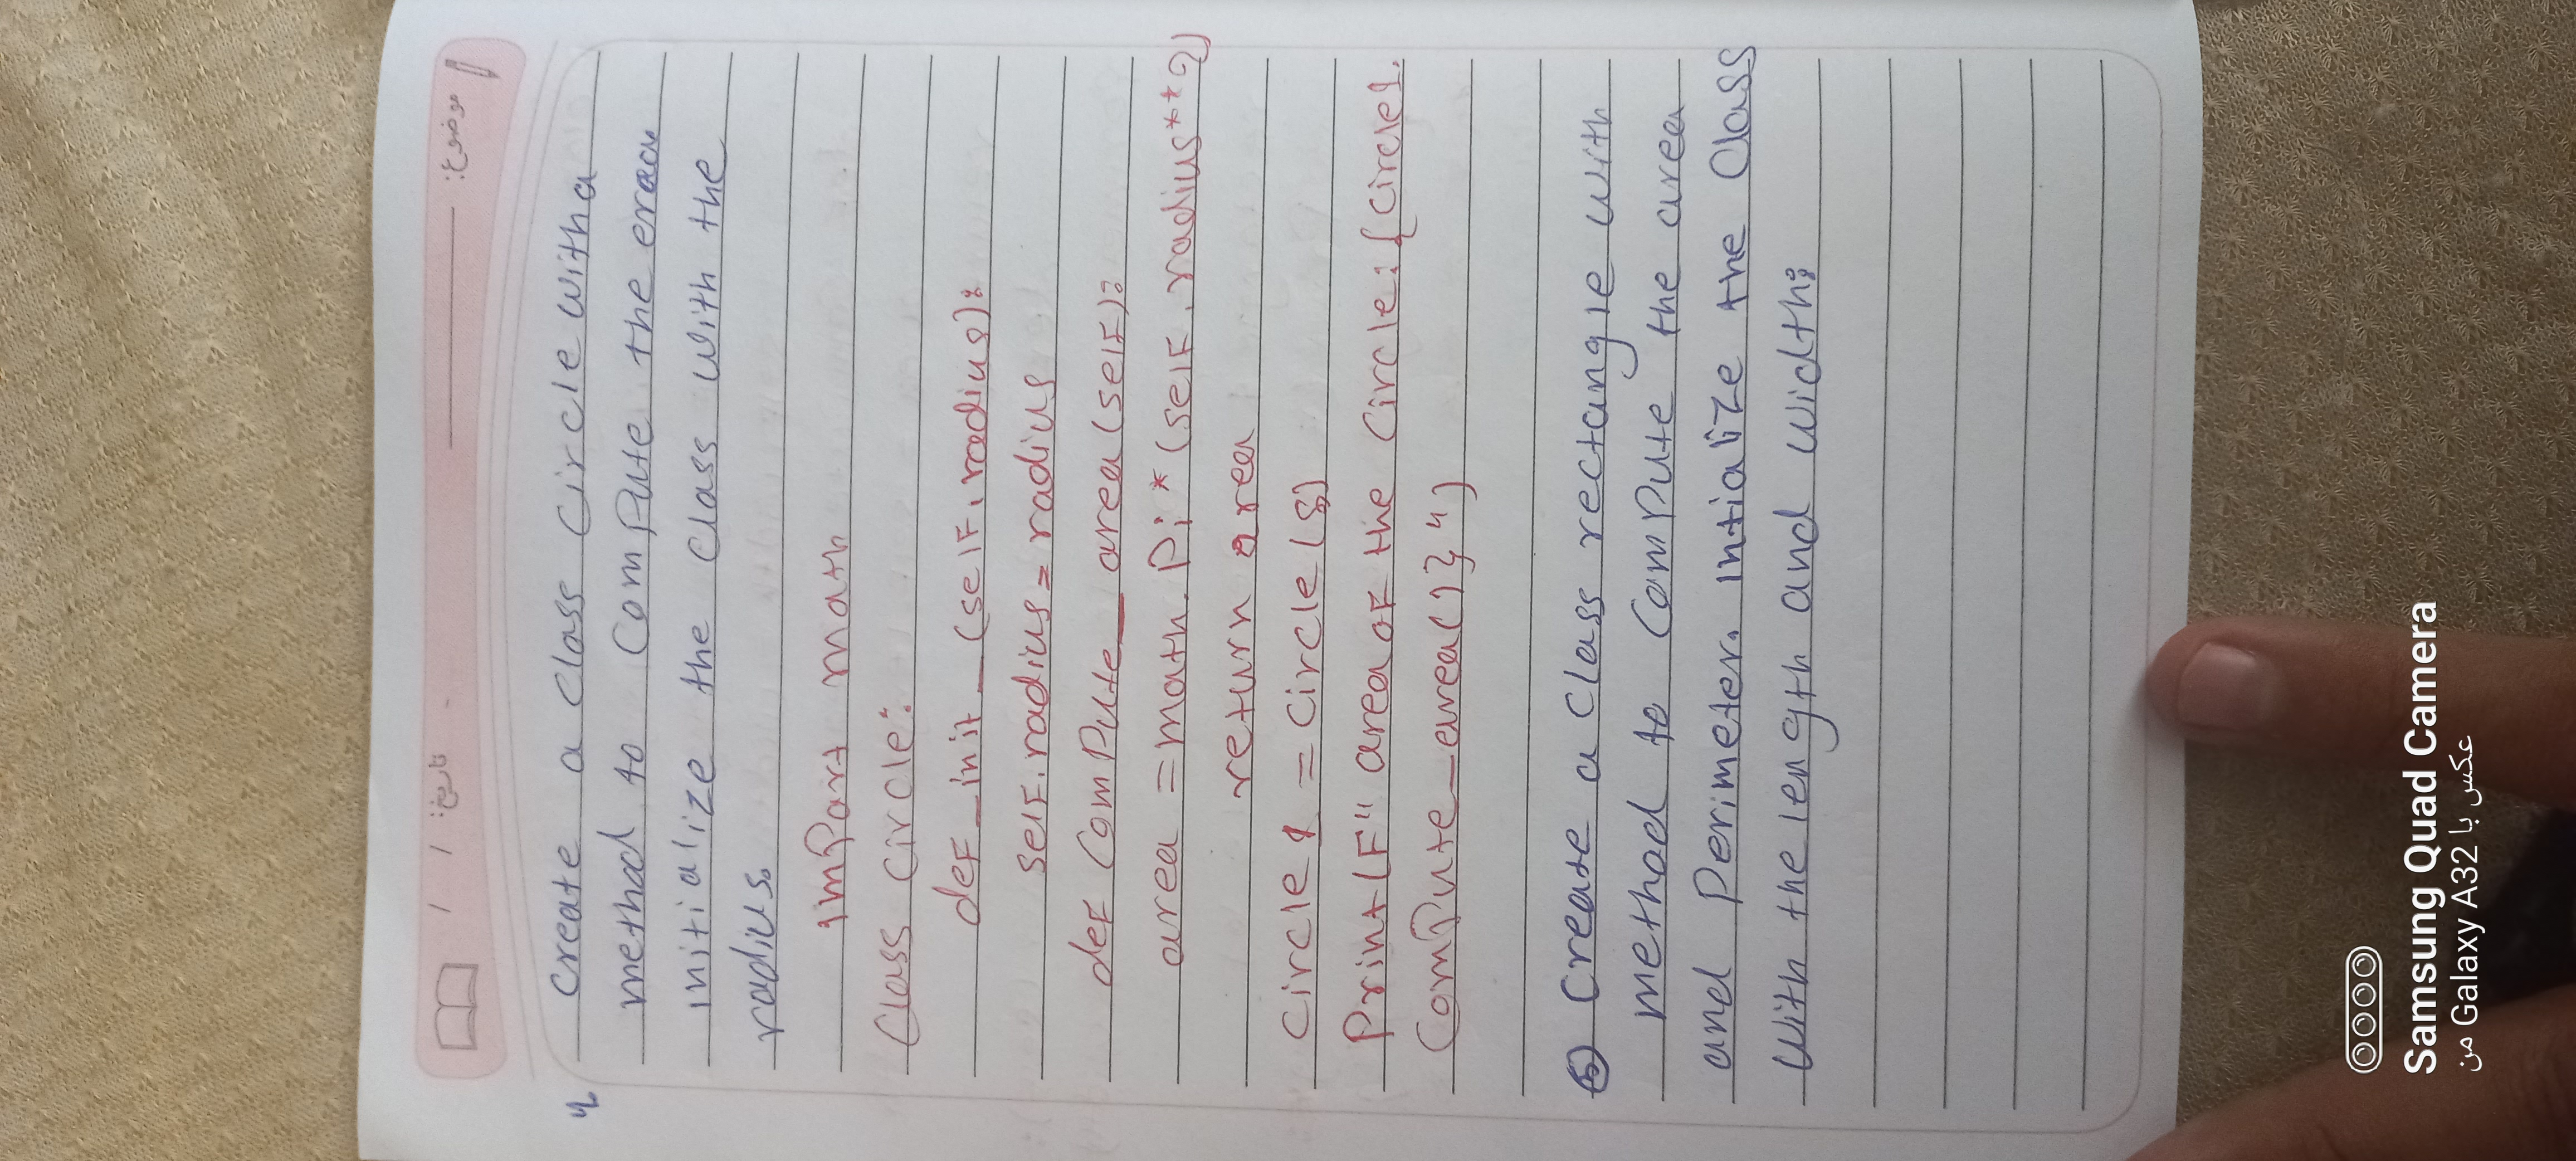 موضوع:
تاریخ: / /
4 Create a class Circle with a
method to compute the
initialize the class with the
radius.
import math
class circle:
def _init_ (self, radius):
self.radius = radius
def compute_area(self):
area = math.Pi * (self.radius**2)
return area
circle1 = circle(5)
Print(F" area of the circle: {circle1.
compute_area()}")
5) Create a class rectangle with
method to compute the area
and perimeter. intialize the class
with the length and width:
Samsung Quad Camera
عکس با Galaxy A32 من